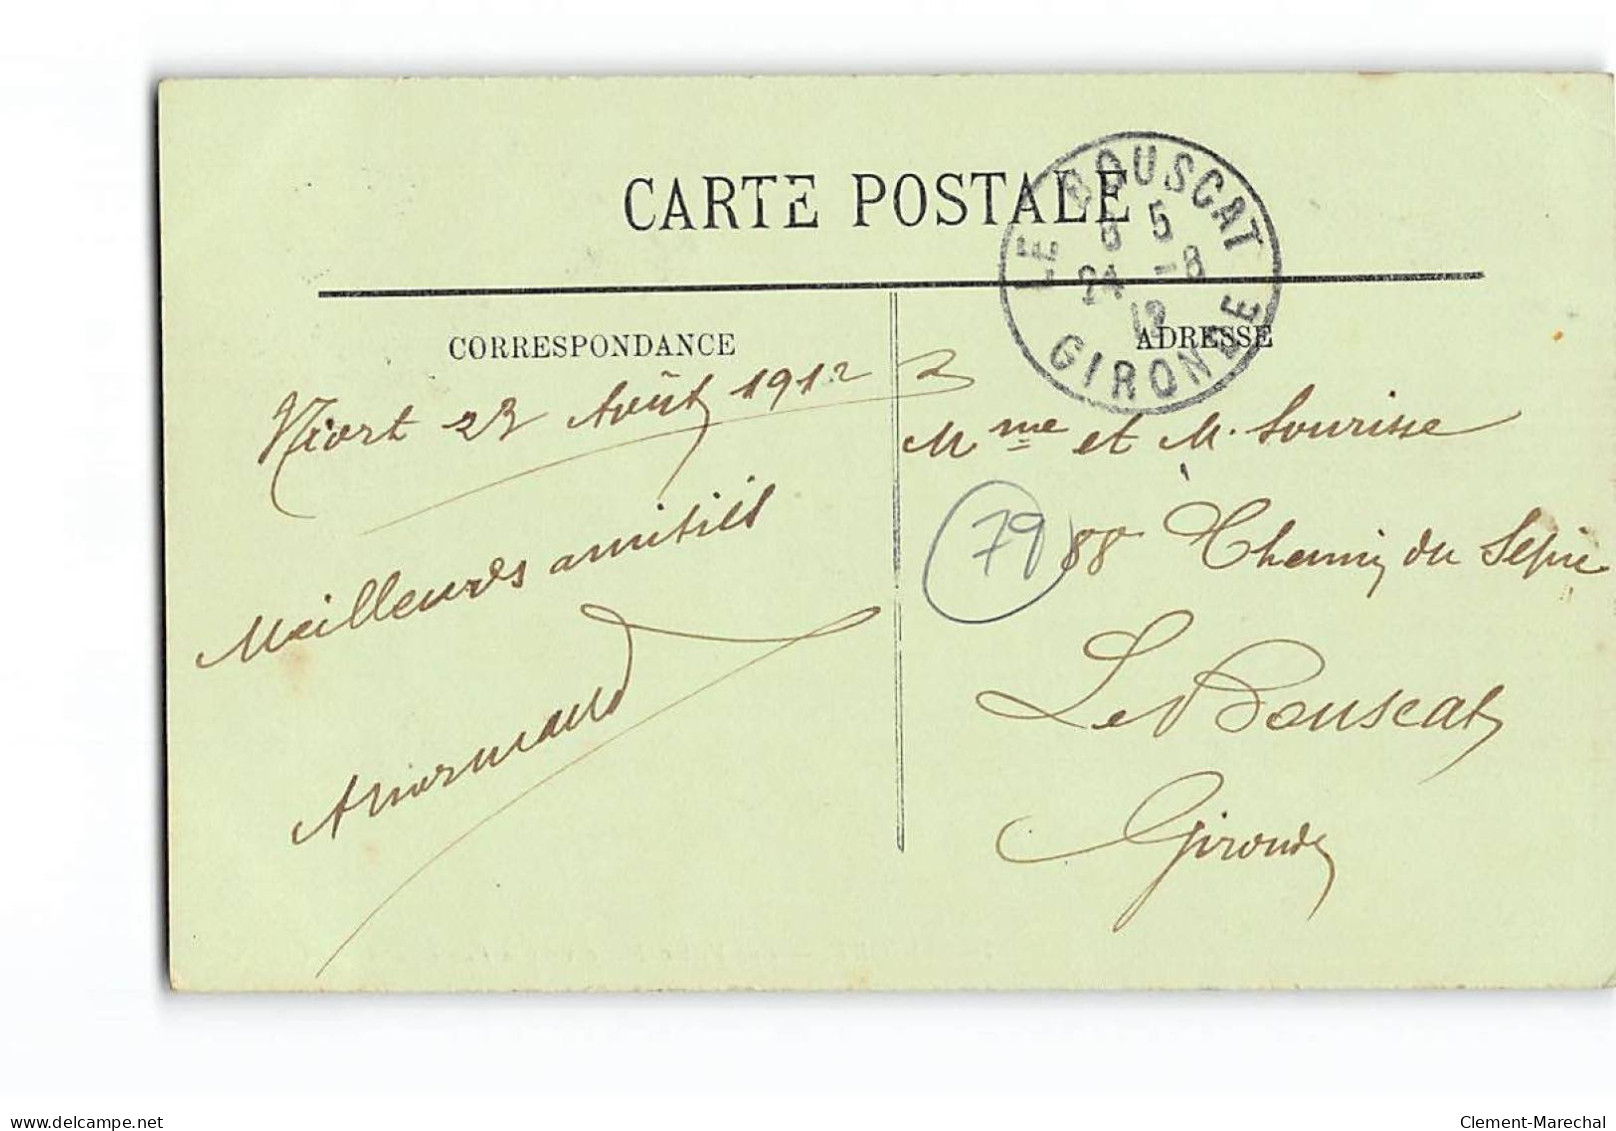 CARTE POSTALE
LE BOUSCAT
6 5
24 -8
12
GIRONDE
CORRESPONDANCE
ADRESSE
Niort 23 Août 1912
Meilleures amitiés
Mme et M. Sourisse
79
88 Chemin du
Le Bouscat
Gironde
delcampe.net
Clement-Marechal